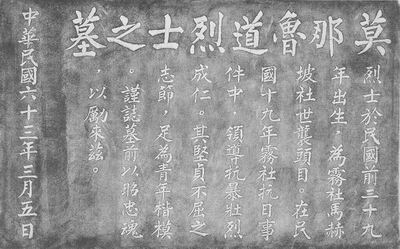 莫那魯道烈士之墓
烈士於民國前三十九
年出生，為霧社馬赫
坡社世襲頭目。在民
國十九年霧社抗日事
件中，領導抗暴壯烈
成仁。其堅貞不屈之
志節，足為青年楷模
。謹誌墓前以昭忠魂
，以勵來茲。
中華民國六十三年三月五日